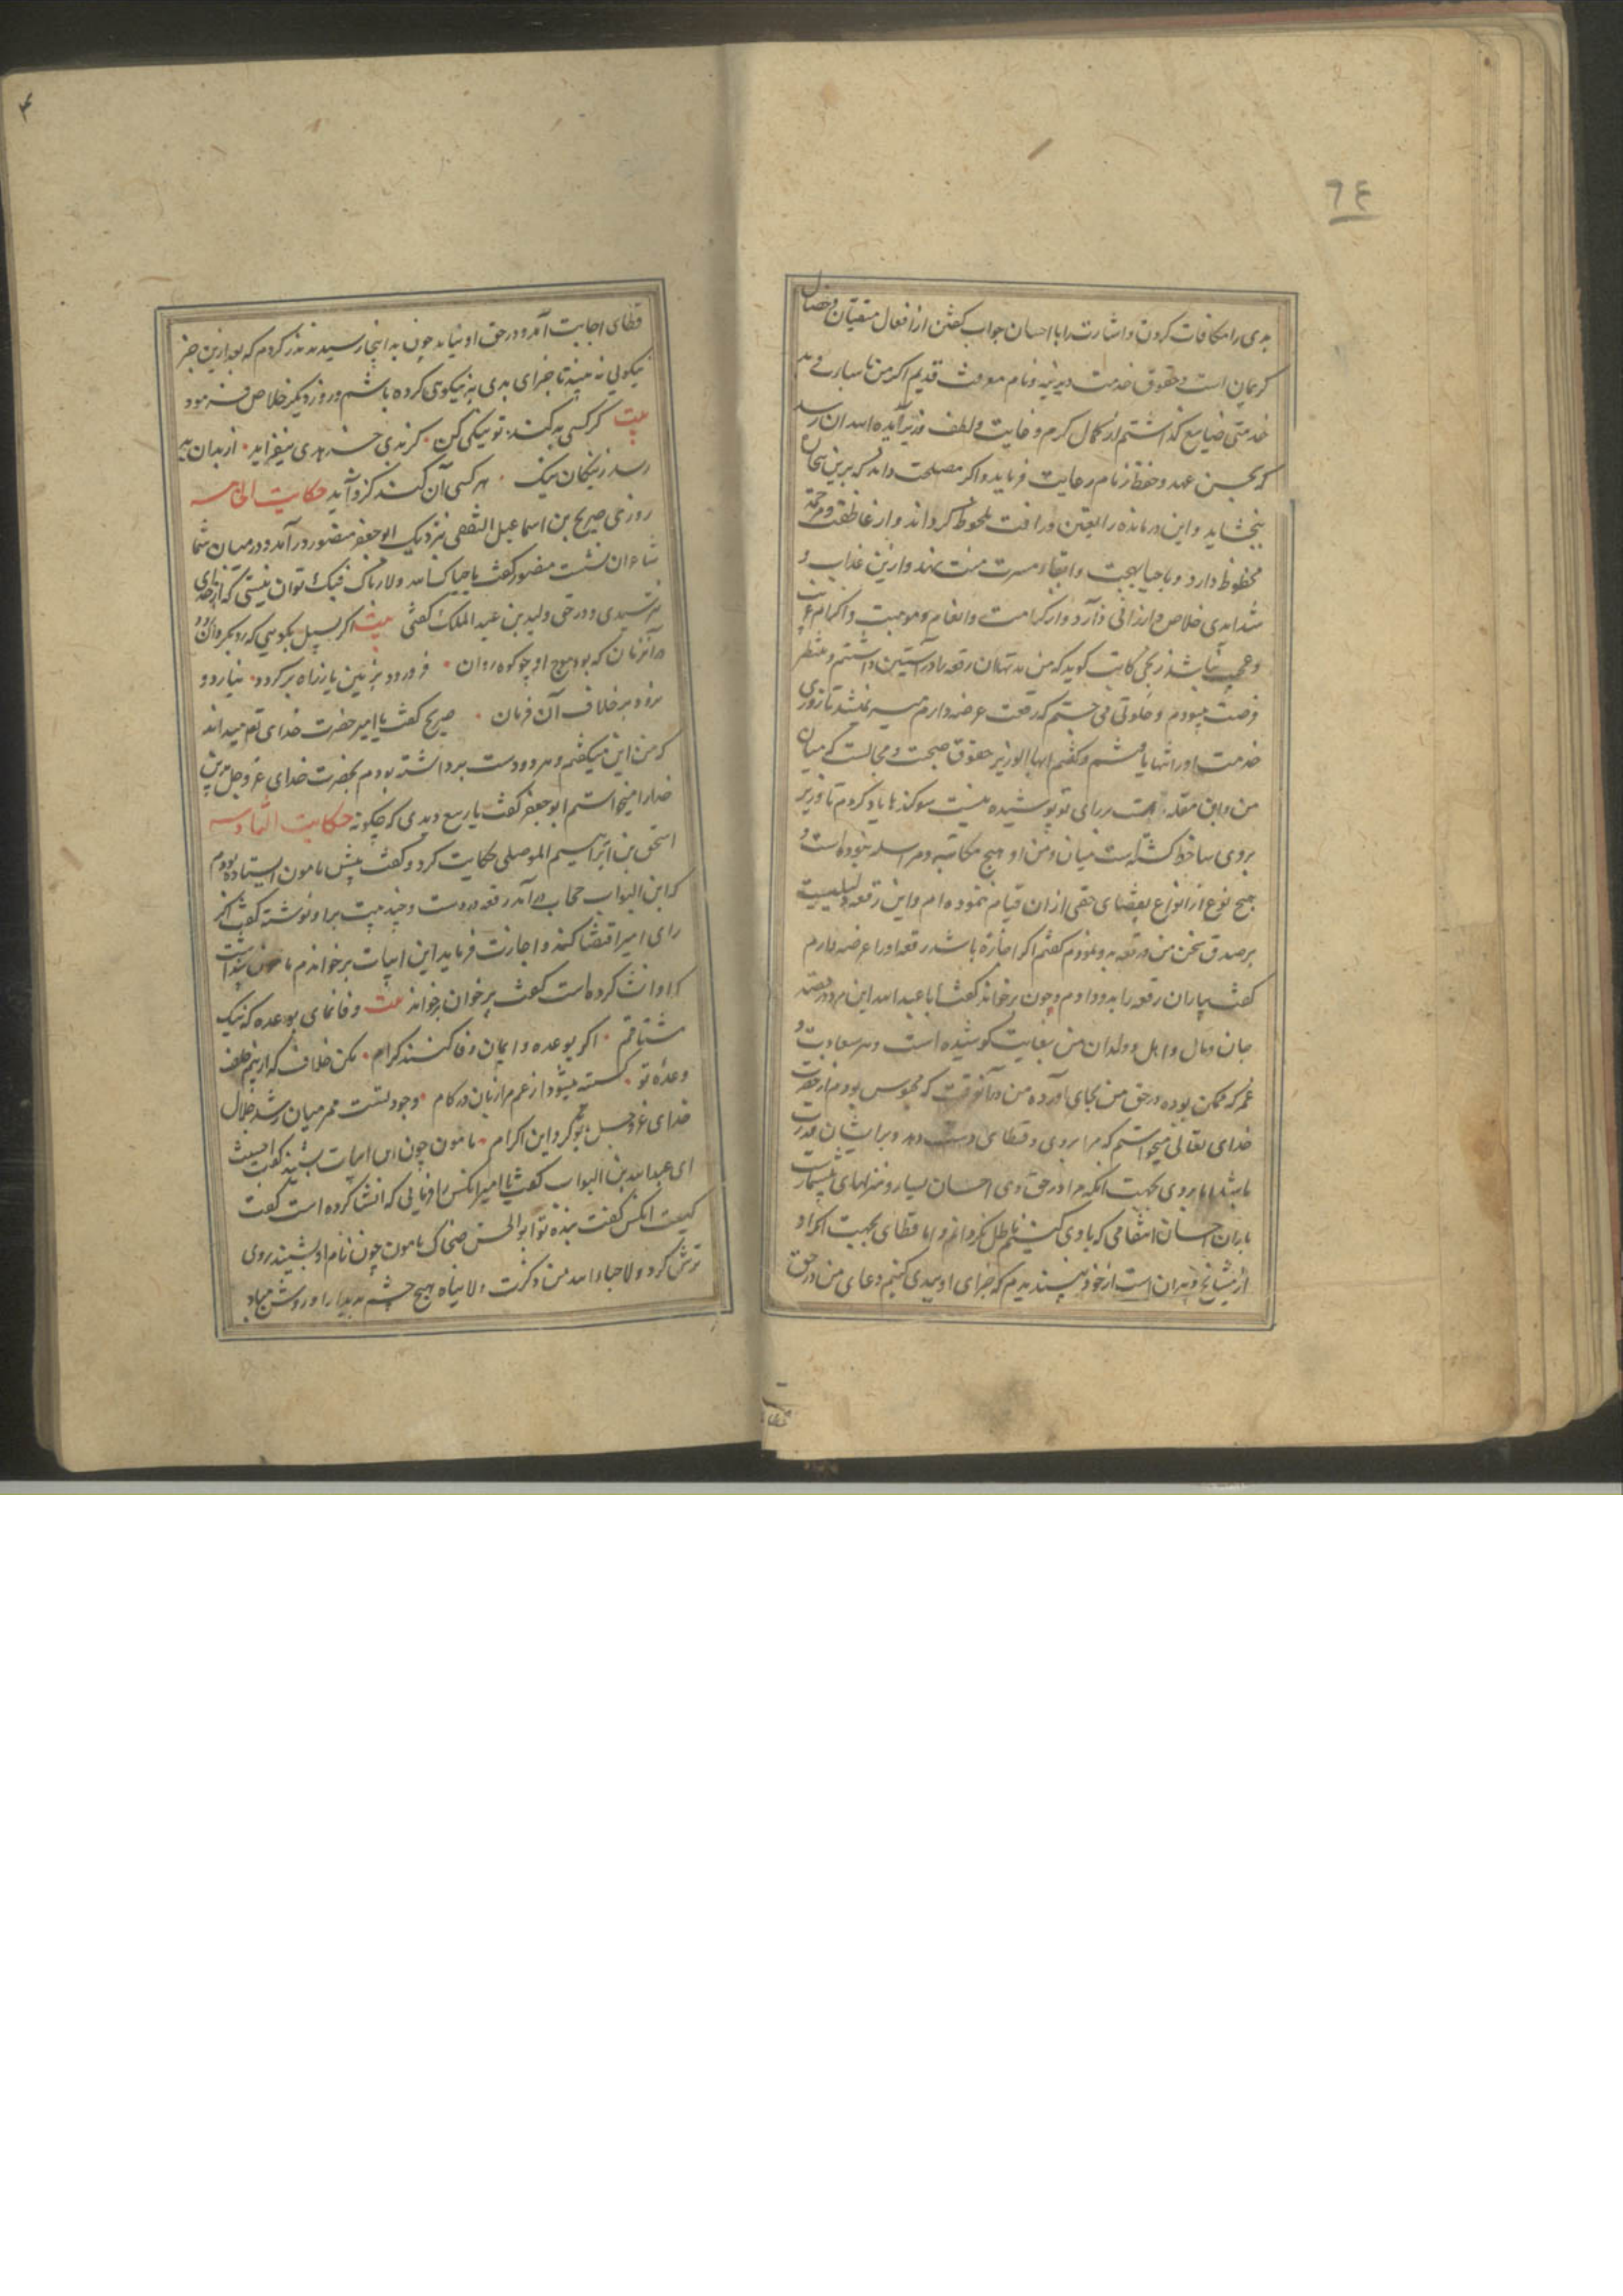 ٦٤
بدی را مکافات کردن و اشارت را با احسان جواب گفتن از افعال متقیان و خصال
کریمان است و حقوق خدمت دیرینه و نام معرفت قدیم اکر من
خدمتی ضایع گذاشتم از کمال کرم و غایت لطف
که بحسن عهد و حفظ زمام رعایت فرماید و اکر مصلحت داند که برین
ببخشاید و این درمانده را بعین رافت ملحوظ گرداند و از عاطفت و مرحمة
محظوظ دارد و باحیا بهجت و ابقاء مسرت منت نهد و ازین عذاب و
شداید خلاص ارزانی دارد و از کرامت و انعام و موهبت و اکرام
و عجب نباشد کاتب کوید که من مدتها آن رقعه را در آستین داشتم و منتظر
فرصت میبودم و خلوتی می جستم که رقعت عرضه دارم میسر نمیشد تا روزی
خدمت او را تنها یافتم و گفتم ایها الوزیر حقوق صحبت و مجالست که میان
من و ابن مقله است بر رای تو پوشیده نیست سوکندها یاد کردم تا وزیر
بروی ساخط گشته است میان من و او هیچ مکاتبه و مراسله نبوده است و
بهیچ نوع از انواع بقضای حقی از ان قیام ننموده ام و این رقعه دلیلیست
بر صدق سخن من و رقعه بدو نمودم گفتم اکر اجازه باشد رقعه او را عرضه دارم
کفت بیار ان رقعه را بدو دادم و چون بر خواند کفت ابا عبد الله این مرد در قصد
جان و مال و اهل و ولدان من بغایت کوشیده است و هر سعایت و
غمز که ممکن بوده در حق من بجای آورده من در آنوقت که محبوس بودم از حضرت
خدای تعالی میخواستم که مرا بروی و قطای دست دهد و بر ایشان قدرت
باشد اما بروی بجهت انکه مرا در حق وی احسان بسیار و منزلهای بیشمار
باران احسان انتقامی که با وی کنیم باطل نکردانم و اما قطای بجهت انکه او
از مشایخ دبیران است از خود نپسندیدم که جزای او ببدی کنیم دعای من در حق
قطای اجابت آمد و در حق او نیامد چون به اینجا رسید نذر کردم که بعد ازین جز
نیکویی نه بینند تا جزای بدی به نیکویی کرده باشم و روز دیکر خلاص فرمود
بیت کر کسی بد کند تو نیکی کن · کز بدی جز بدی نیفزاید · از بدان بد
رسد ز نیکان نیک · هر کسی آن کند کزو آید حکایت الخامسه
روزی صریح بن اسماعیل الثقفی نزدیک ابو جعفر منصور در آمد و در میان شما
شاعران نشست منصور کفت یا حیاک الله ولا بیاک توان نیستی که از خدای
نترسیدی و در حق ولید بن عبد الملک گفتی بیت اکر بسیل بگویی که
در آنزمان که بود موج او چو کوه روان · فرو رود بزمین یا ز راه برکردد · نیارد و
نرود بر خلاف آن فرمان · صریح کفت یا امیر حضرت خدای تع میداند
که من این میگفتم و هر دو دست برداشته بودم بحضرت خدای عز و جل و بدین
خدا را میخواستم ابو جعفر کفت یا ربیع دیدی که چگونه حکایت السادسه
اسحق بن ابراهیم الموصلی حکایت کرد و کفت پیش مامون ایستاده بودم
که ابن البواب حجاب در آمد رقعه در دست و چند بیت برو نوشته کفت اکر
رای امیر اقتضا کند و اجازت فرماید این ابیات بر خوانم مامون پنداشت
که او انشا کرده است کفت بر خوان بر خواند بیت وفا نمای بوعده که نیک
مشتاقم · اکر بوعده و ایمان وفا کنند کرام · مکن خلاف که از بیم خلف
وعدهٔ تو · کسسته میشود از غم مرا زبان در کام · وجود تست مر میان
خدای عز و جل بتو کرد این اکرام · مامون چون این ابیات بشنید کفت احسنت
ای عبدالله بن البواب کفت یا امیر انکس را فرمایی که انشا کرده است کفت
کیست انکس کفت بنده تو ابو الحسن ضحاک مامون چون نام او بشنید روی
ترش کرد و لا حیا الله من ذکرت ولا بیاه هیچ چشم بدیدار او روشن مباد